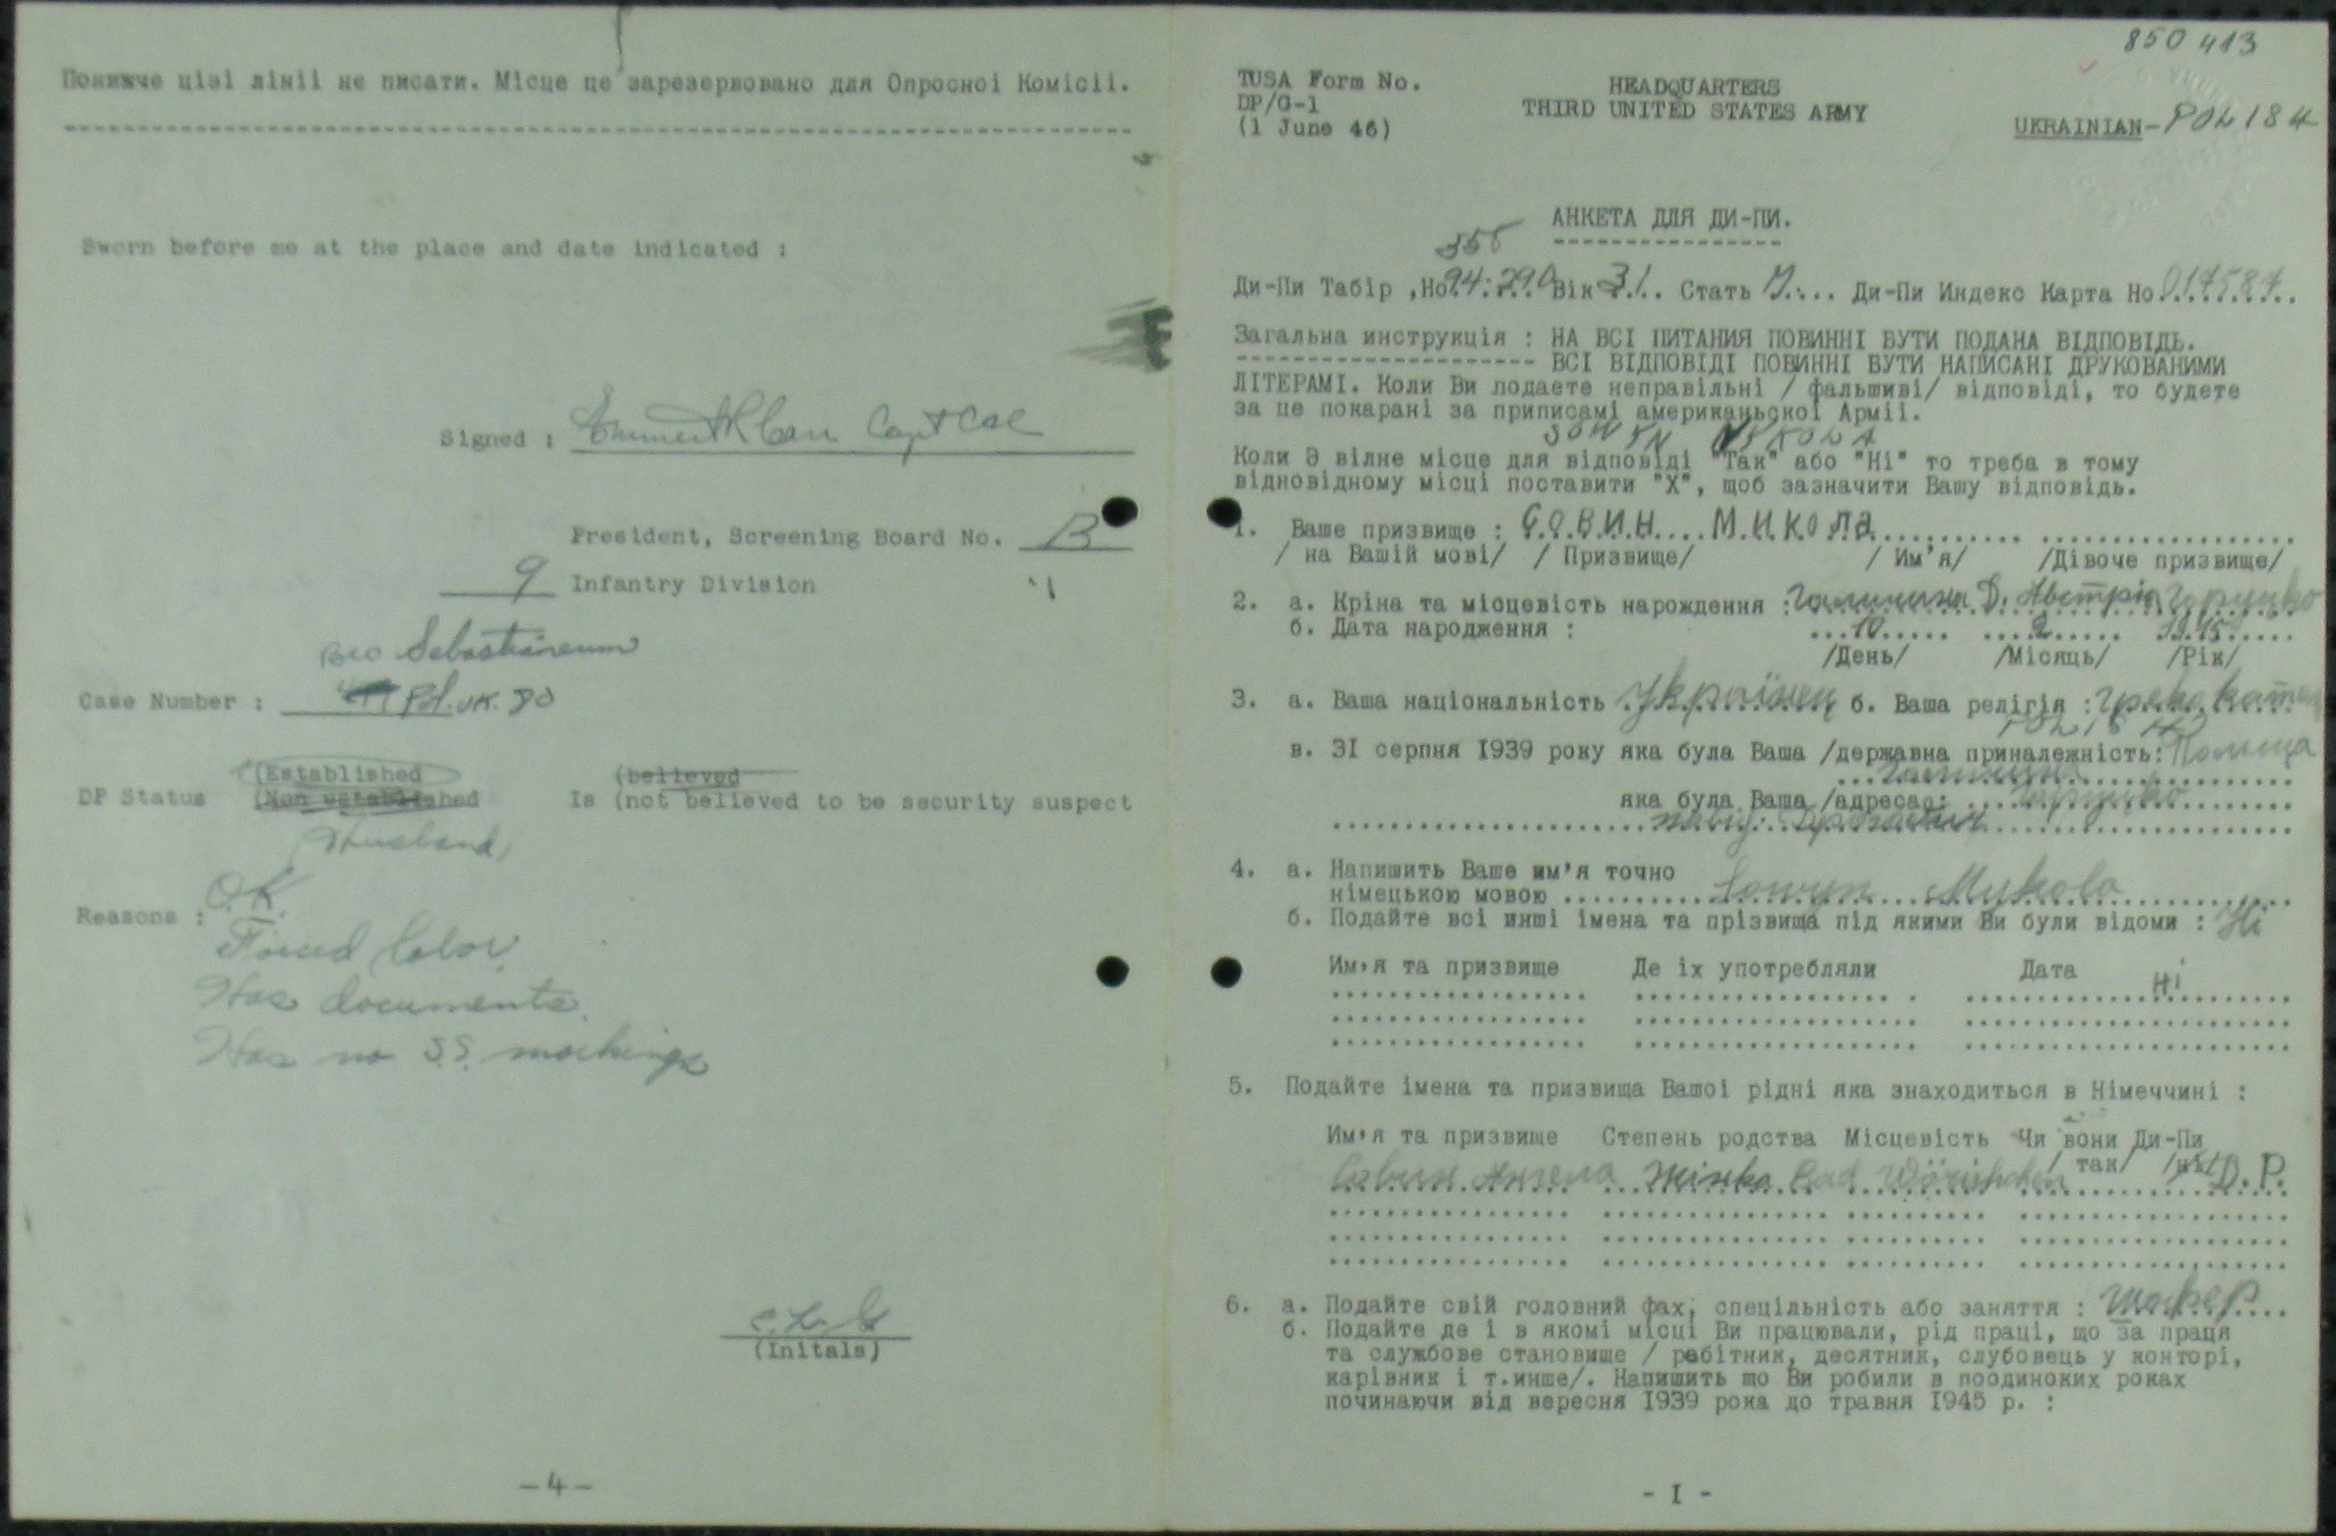 Понижче цієї лінії не писати. Місце це зарезервовано для Опросної Комісії.
Sworn before me at the place and date indicated :
Signed : Capt Cae
President, Screening Board No. B
9 Infantry Division
Sebastianeum
Case Number : Pol. UK. 80
DP Status (Established
(Non established Is (believed
(not believed to be security suspect
Husband
Reasons : O.K.
Forced Labor
Has documents.
Has no S.S. markings
(Initals)
-4-
850 413
TUSA Form No.
DP/G-1
(1 June 46)
HEADQUARTERS
THIRD UNITED STATES ARMY
UKRAINIAN-POL 184
АНКЕТА ДЛЯ ДИ-ПИ.
Ди-Пи Табір ,Но 94-290 Вік 31. Стать М. Ди-Пи Индекс Карта Но 017587
Загальна инструкція : НА ВСІ ПИТАНИЯ ПОВИННІ БУТИ ПОДАНА ВІДПОВІДЬ.
ВСІ ВІДПОВІДІ ПОВИННІ БУТИ НАПИСАНІ ДРУКОВАНИМИ
ЛІТЕРАМІ. Коли Ви подаєте неправільні / фальшиві/ відповіді, то будете
за це покарані за приписамі американьскої Армії.
Коли Э вілне місце для відповіді "Так" або "Ні" то треба в тому
відновідному місці поставити "Х", щоб зазначити Вашу відповідь.
1. Ваше призвище : СОВИН МИКОЛА
/ на Вашій мові/ / Призвище/ / Им'я/ /Дівоче призвище/
2. а. Кріна та місцевість нарождення : Галичина Д. Австрія Горуцко
б. Дата народження : 10 2 1915
/День/ /Місяць/ /Рік/
3. а. Ваша національність Українец б. Ваша релігія : Греко катол
в. ЗІ серпня І939 року яка була Ваша /державна приналежність: Польща
Галичина
яка була Ваша /адреса: Горуцко
повіт: Дрогобич
4. а. Напишить Ваше им'я точно
німецькою мовою Sowyn Mykola
б. Подайте всі инші імена та прізвища під якими Ви були відоми : Ні
Им,я та призвище Де їх употребляли Дата
Ні
5. Подайте імена та призвища Вашої рідні яка знаходиться в Німеччині :
Им,я та призвище Степень родства Місцевість Чи вони Ди-Пи
/ так/ /ні/
Совин Ангела Жінка Bad Wörishofen D.P.
6. а. Подайте свій головний фах, спецільність або заняття : шофер
б. Подайте де і в якомі місці Ви працювали, рід праці, що за праця
та службове становище / робітник, десятник, слубовець у конторі,
карівник і т.инше/. Напишить що Ви робили в поодиноких роках
починаючи від вересня І939 рока до травня І945 р. :
- I -